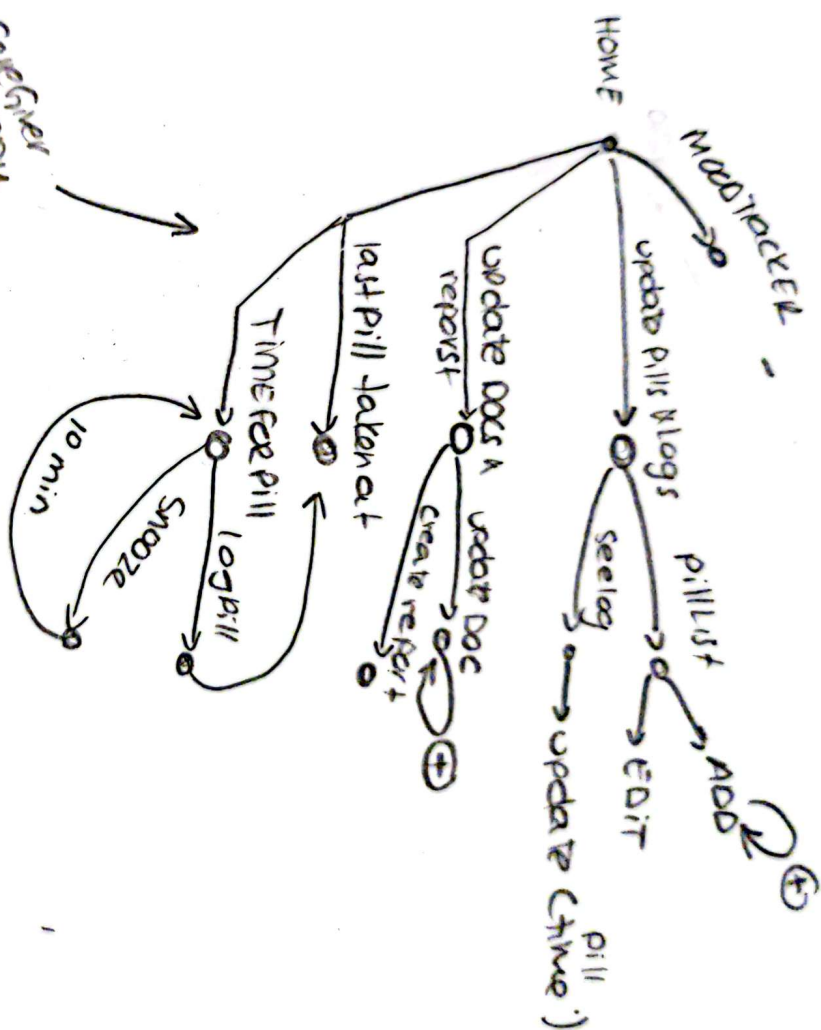 HOME
MOODTRACKER
update pills & logs
pillList
ADD
+
EDiT
see log
update (time)
pill
update Docs &
reporst
update DOC
+
create report
last pill taken at
TimeForpill
log pill
Snooze
10 min
careGiver